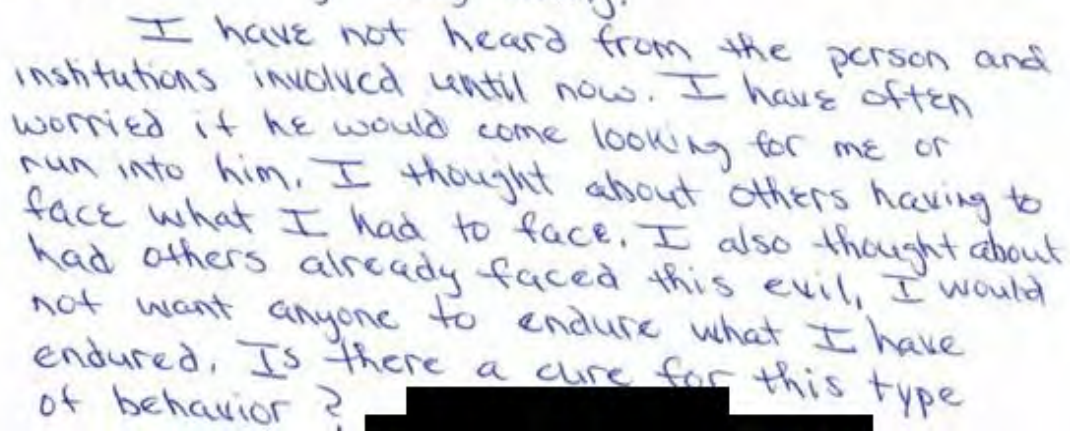 I have not heard from the person and
institutions involved until now. I have often
worried if he would come looking for me or
run into him. I thought about others having to
face what I had to face. I also thought about
had others already faced this evil, I would
not want anyone to endure what I have
endured. Is there a cure for this type
of behavior?